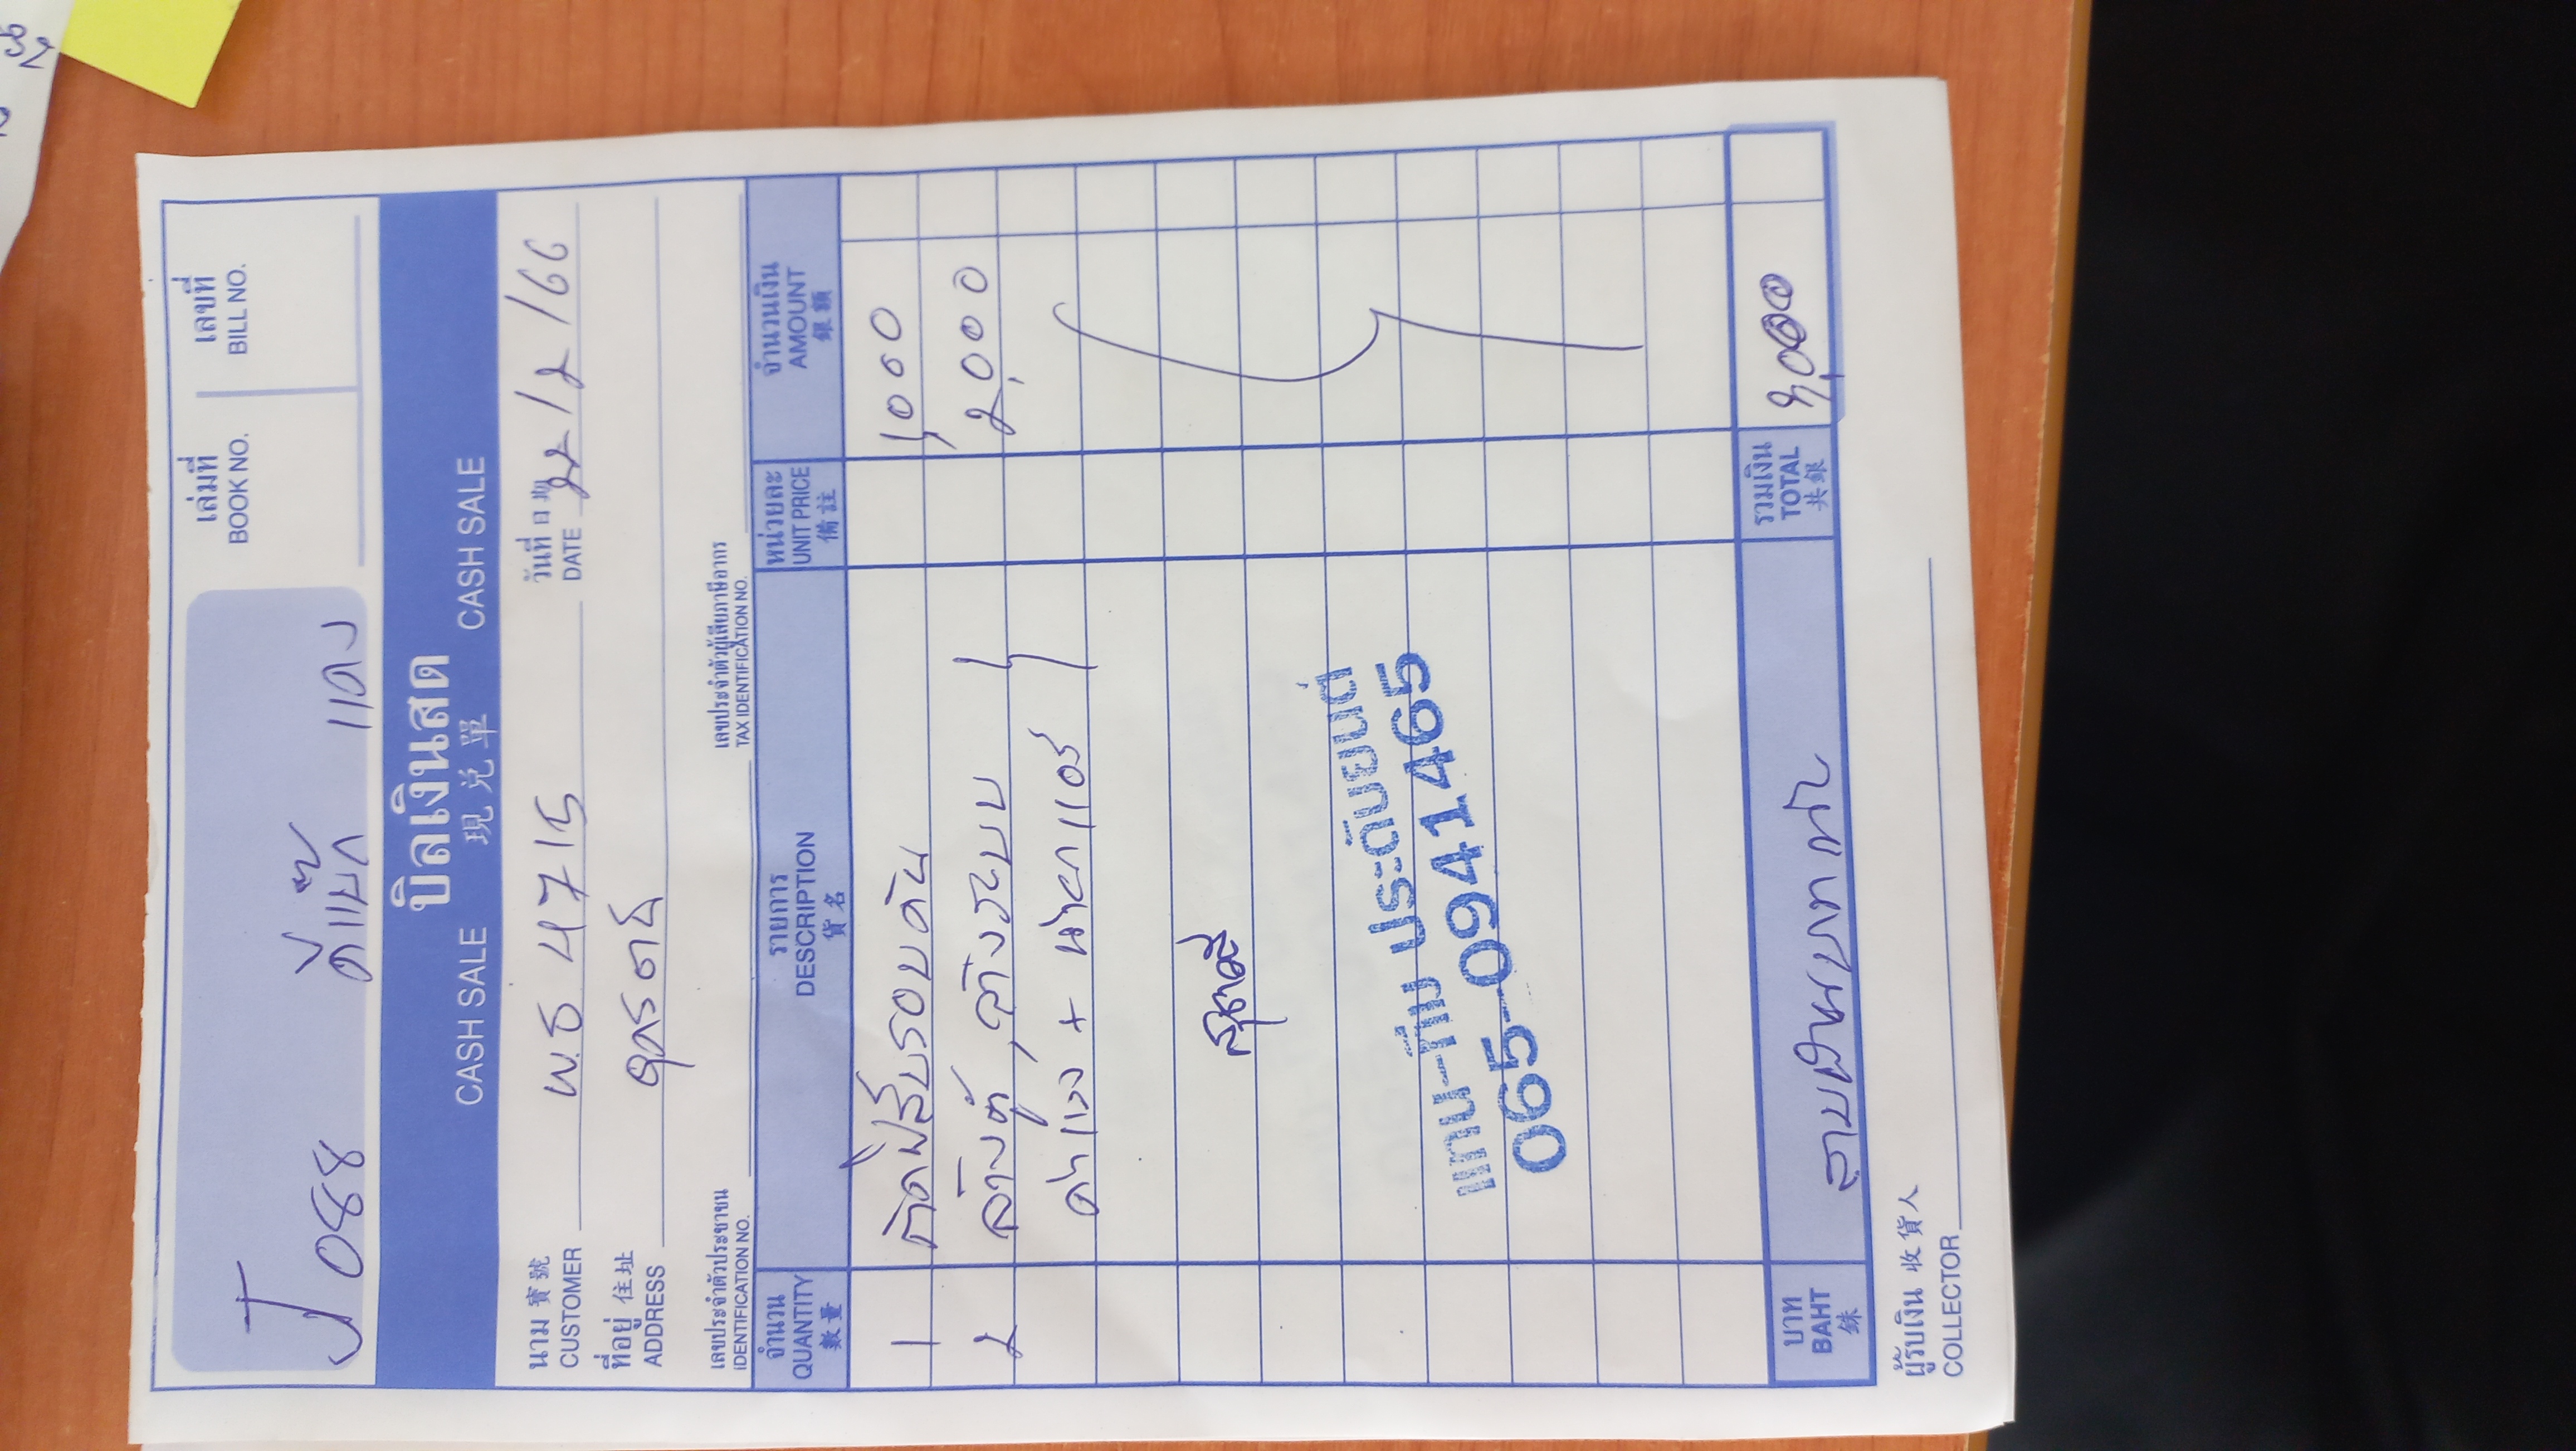 J 088 ดีแม็ก แดง
เล่มที่ เลขที่
BOOK NO. BILL NO.
บิลเงินสด
CASH SALE 現兌單 CASH SALE
นาม 寶號 พ.ธ 4715 วันที่ 日期 22/2/66
CUSTOMER DATE
ที่อยู่ 住址 อุดรธานี
ADDRESS
เลขประจำตัวประชาชน เลขประจำตัวผู้เสียภาษีอากร
IDENTIFICATION NO. TAX IDENTIFICATION NO.
จำนวน รายการ หน่วยละ จำนวนเงิน
QUANTITY DESCRIPTION UNIT PRICE AMOUNT
數量 貨名 備註 銀額
1 ติดฟิล์มรอบคัน 1,000
2 ล้างตู้, ล้างระบบ 2,000
ค่าแรง + น้ำยาแอร์
แทน-ทีม ประดับยนต์
065-0941465
บาท สามพันบาทถ้วน รวมเงิน 3,000
BAHT TOTAL
銖 共銀
ผู้รับเงิน 收貨人
COLLECTOR